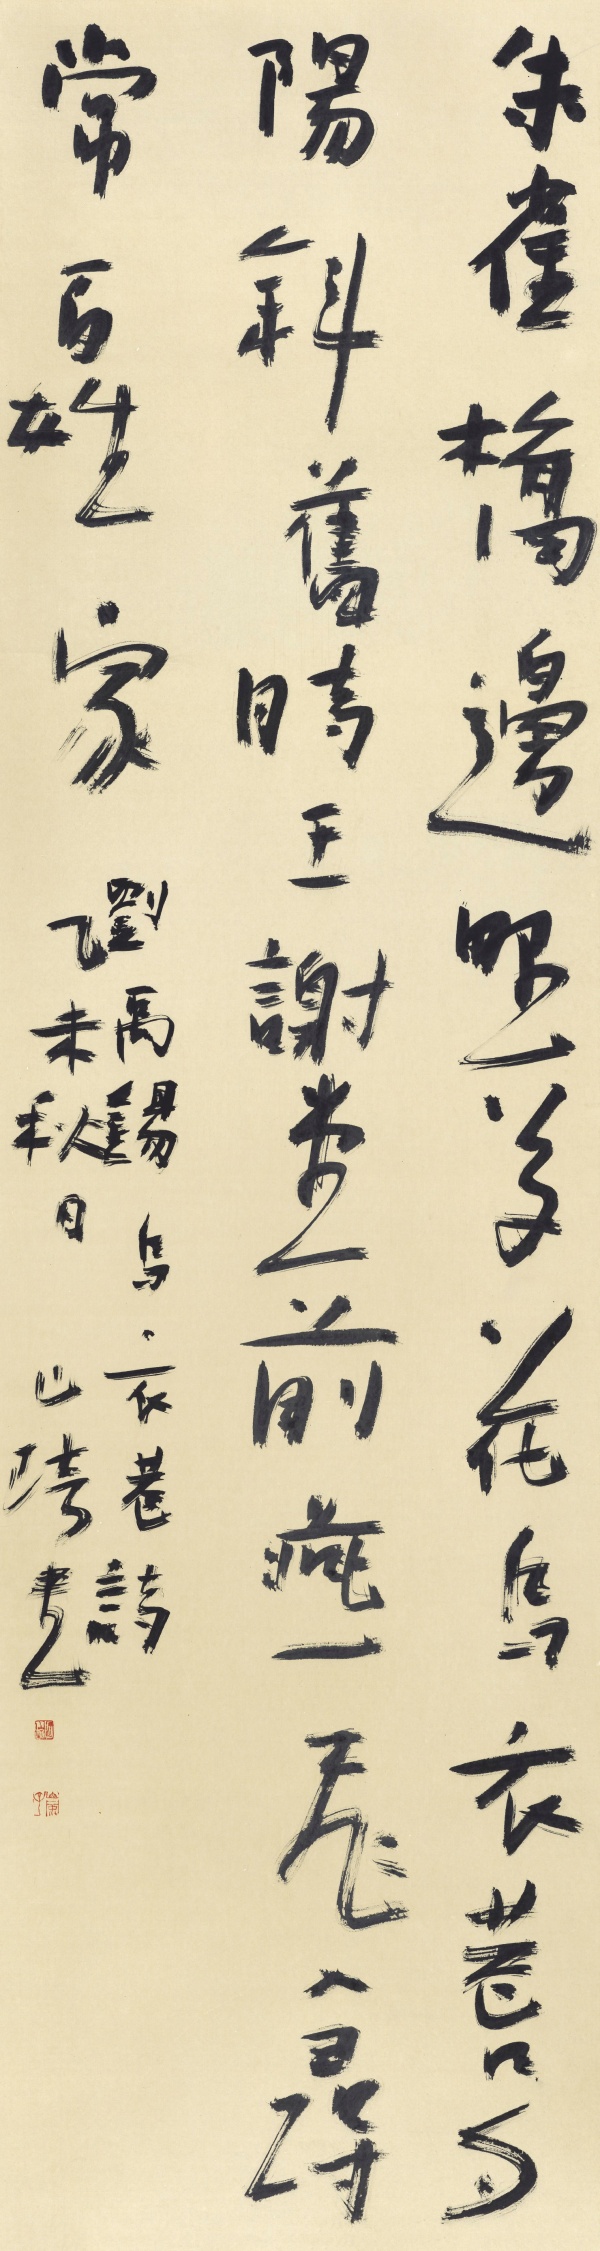 朱雀橋邊野草花烏衣巷口夕
陽斜舊時王謝堂前燕飛入尋
常百姓家
劉禹錫烏衣巷詩
乙未秋日 山 書